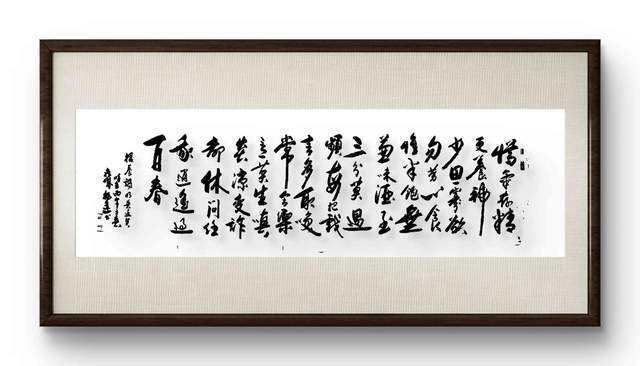 惜氣存精
更養神
少思寡欲
勿劳心食
惟半飽無
兼味酒至
三分莫過
頻每把戲
言多取笑
常含樂
意莫生嗔
炎凉变詐
都休問任
我逍遥過
百春